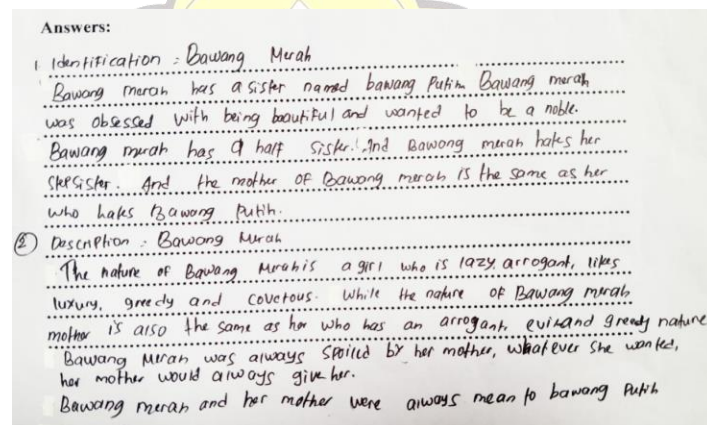 Answers:
1. Identification : Bawang Merah
Bawang merah has a sister named bawang Putih. Bawang merah
was obsessed with being beautiful and wanted to be a noble.
Bawang merah has a half sister. And Bawang merah hates her
stepsister. And the mother of Bawang merah is the same as her
who hates Bawang Putih.
2 Description : Bawang Merah
The nature of Bawang Merah is a girl who is lazy, arrogant, likes
luxury, greedy and covetous. While the nature of Bawang merah
mother is also the same as her who has an arrogant, evil and greedy nature
Bawang Merah was always spoiled by her mother, whatever she wanted,
her mother would always give her.
Bawang merah and her mother were always mean to bawang Putih